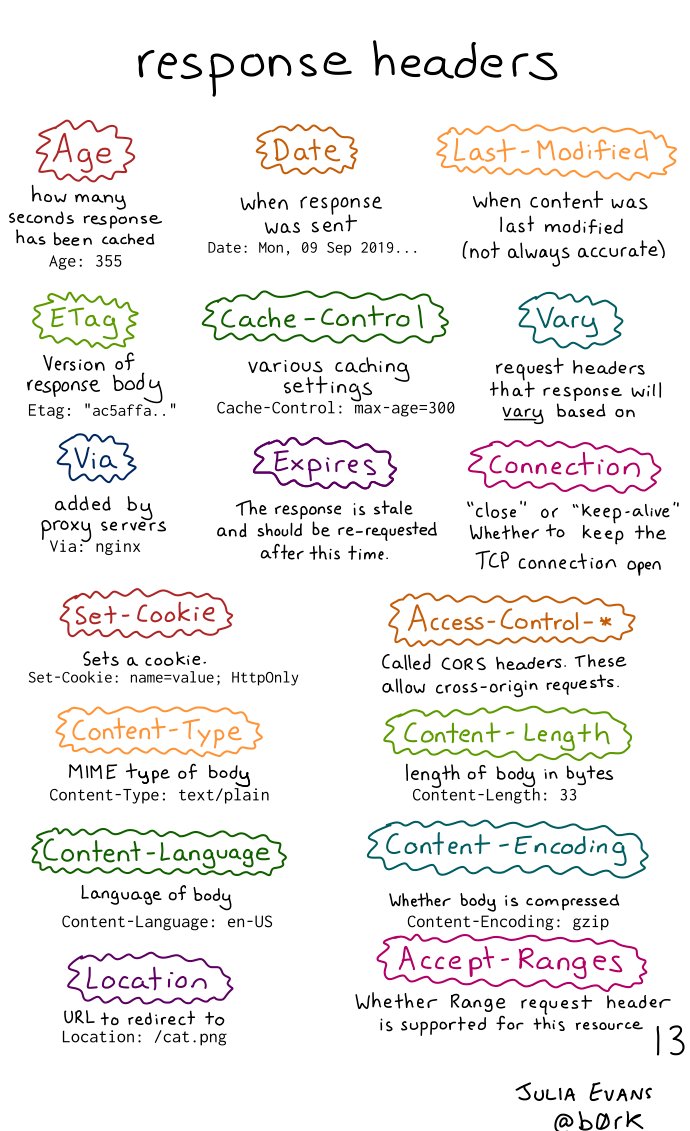 response headers
Age
how many
seconds response
has been cached
Age: 355
Date
when response
was sent
Date: Mon, 09 Sep 2019...
Last-Modified
when content was
last modified
(not always accurate)
ETag
Version of
response body
Etag: "ac5affa.."
Cache-Control
various caching
settings
Cache-Control: max-age=300
Vary
request headers
that response will
vary based on
Via
added by
proxy servers
Via: nginx
Expires
The response is stale
and should be re-requested
after this time.
Connection
"close" or "keep-alive"
Whether to keep the
TCP connection open
Set-Cookie
Sets a cookie.
Set-Cookie: name=value; HttpOnly
Access-Control-*
Called CORS headers. These
allow cross-origin requests.
Content-Type
MIME type of body
Content-Type: text/plain
Content-Length
length of body in bytes
Content-Length: 33
Content-Language
Language of body
Content-Language: en-US
Content-Encoding
Whether body is compressed
Content-Encoding: gzip
Location
URL to redirect to
Location: /cat.png
Accept-Ranges
Whether Range request header
is supported for this resource
13
JULIA EVANS
@b0rk